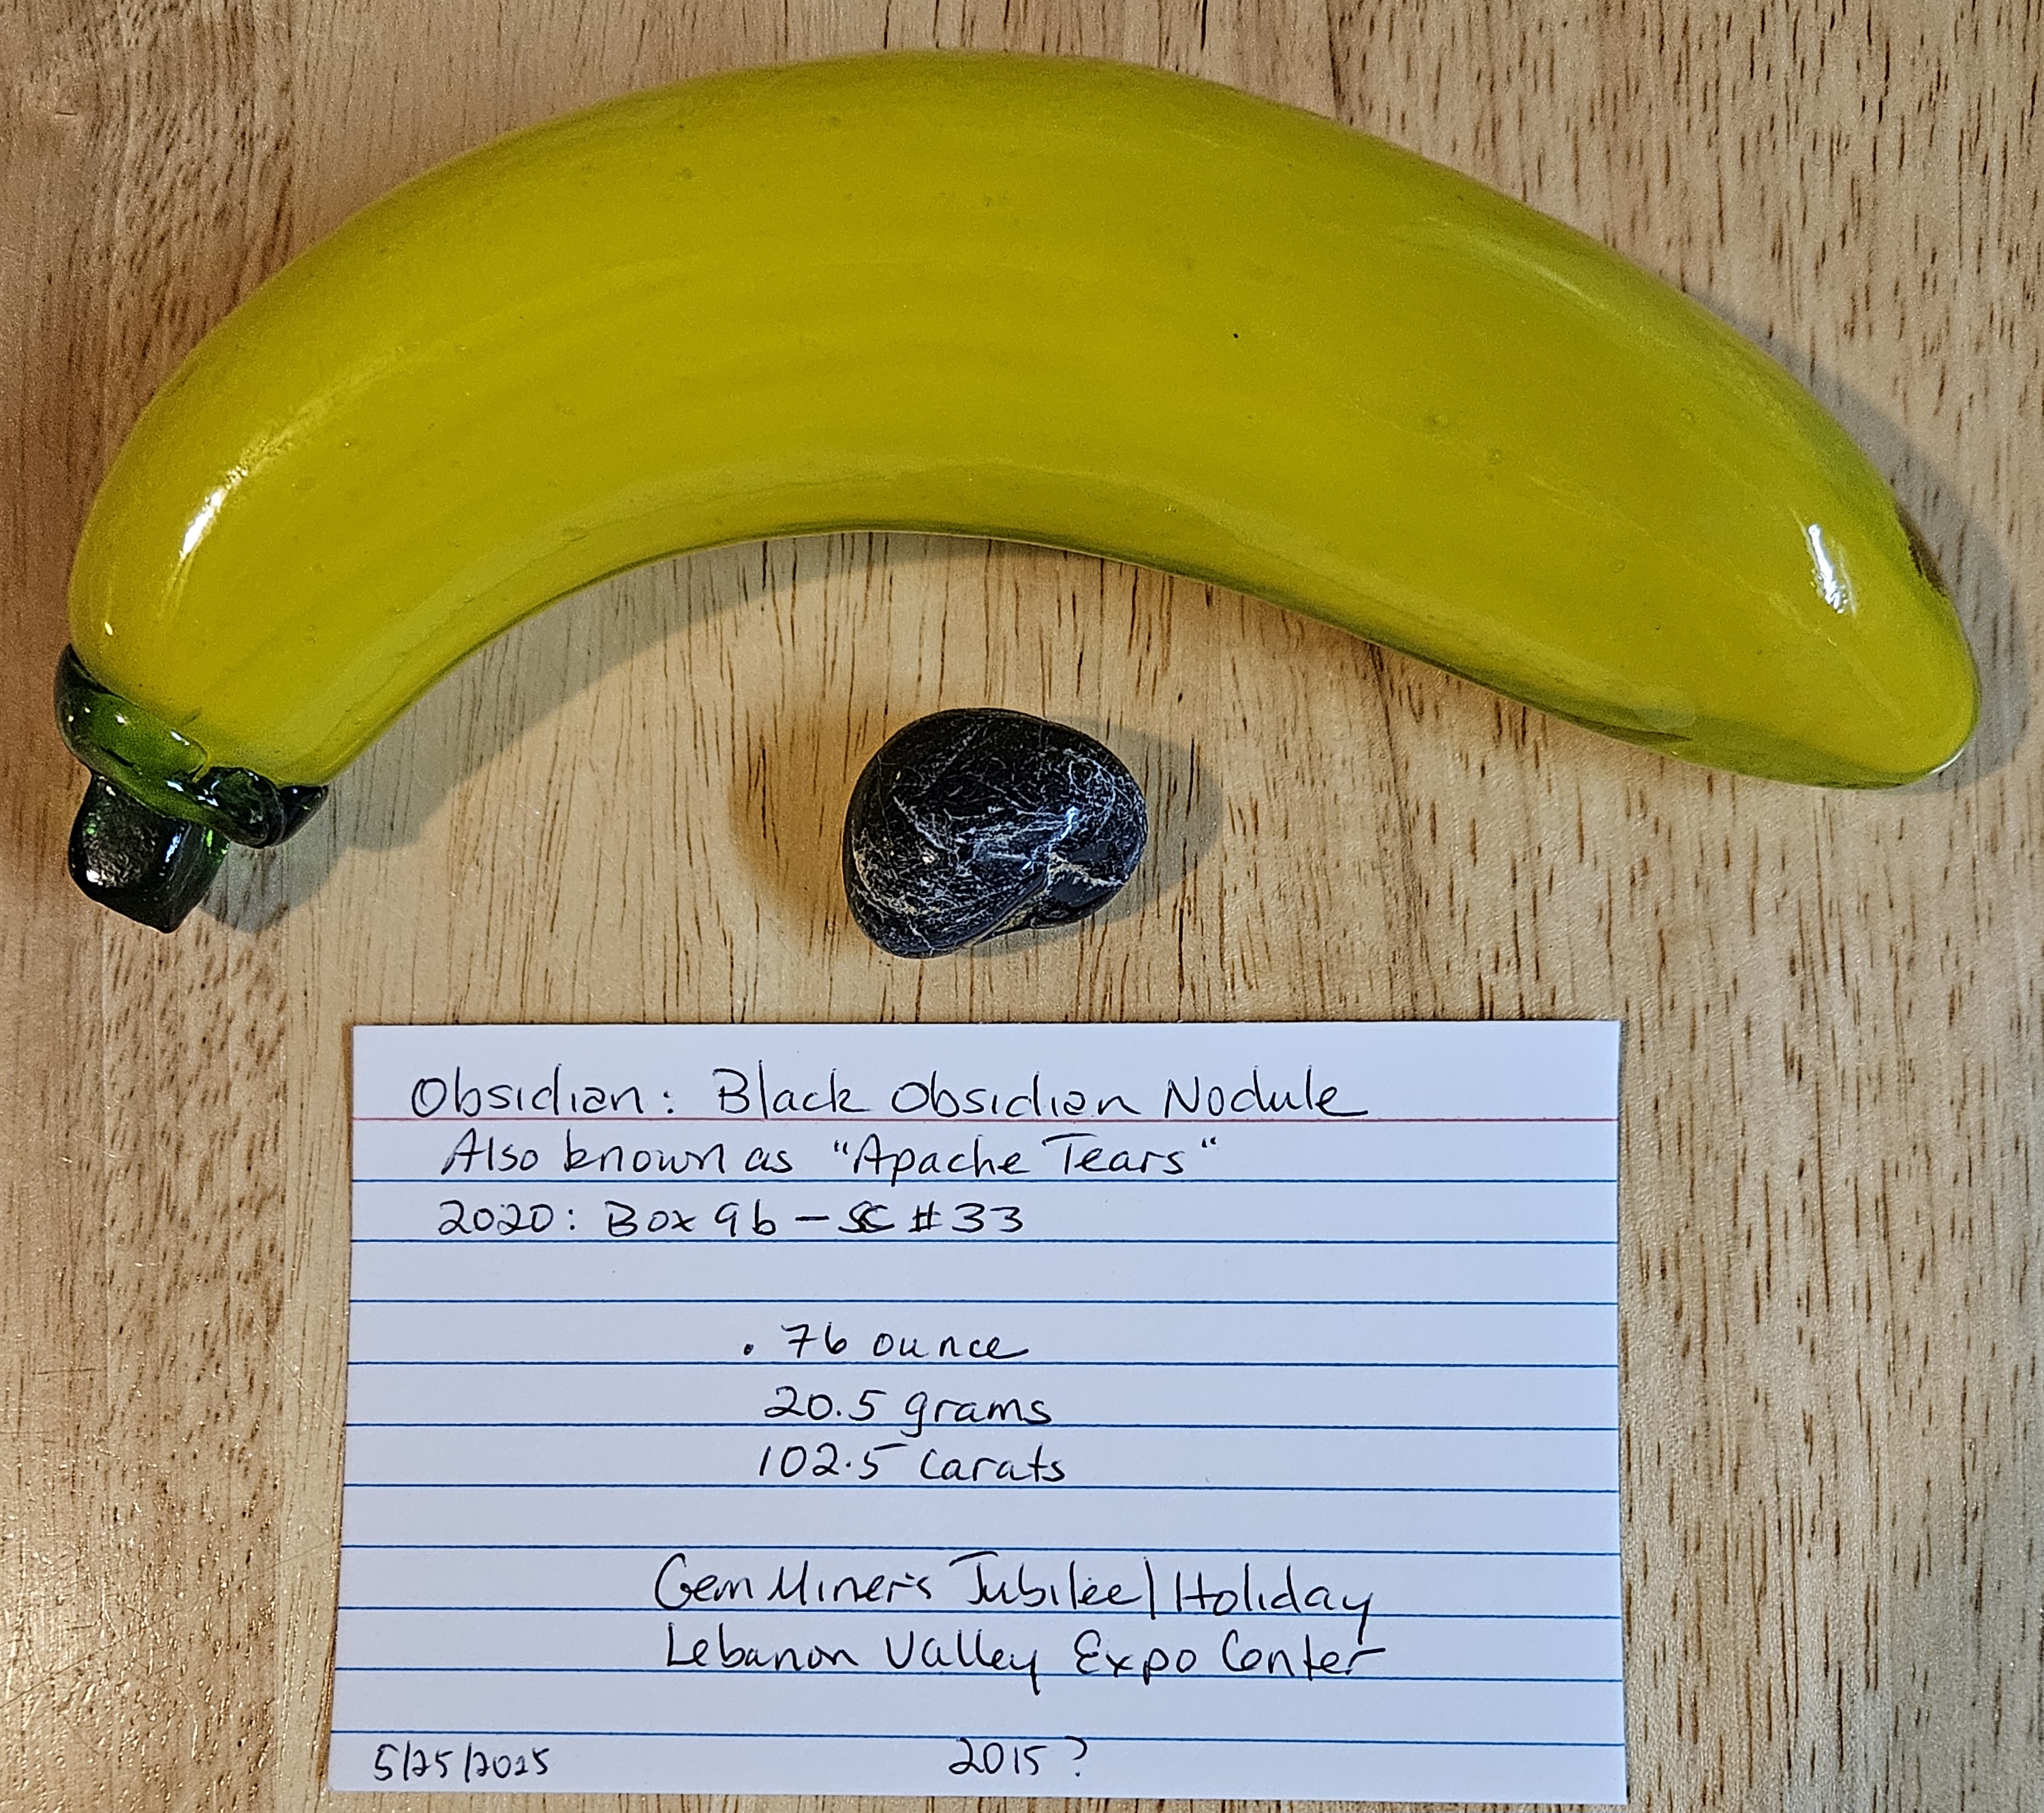 Obsidian: Black Obsidian Nodule
Also known as "Apache Tears"
2020: Box 9b - SC #33
.76 ounce
20.5 grams
102.5 carats
Gem Miner's Jubilee/Holiday
Lebanon Valley Expo Center
5/25/2025 2015?